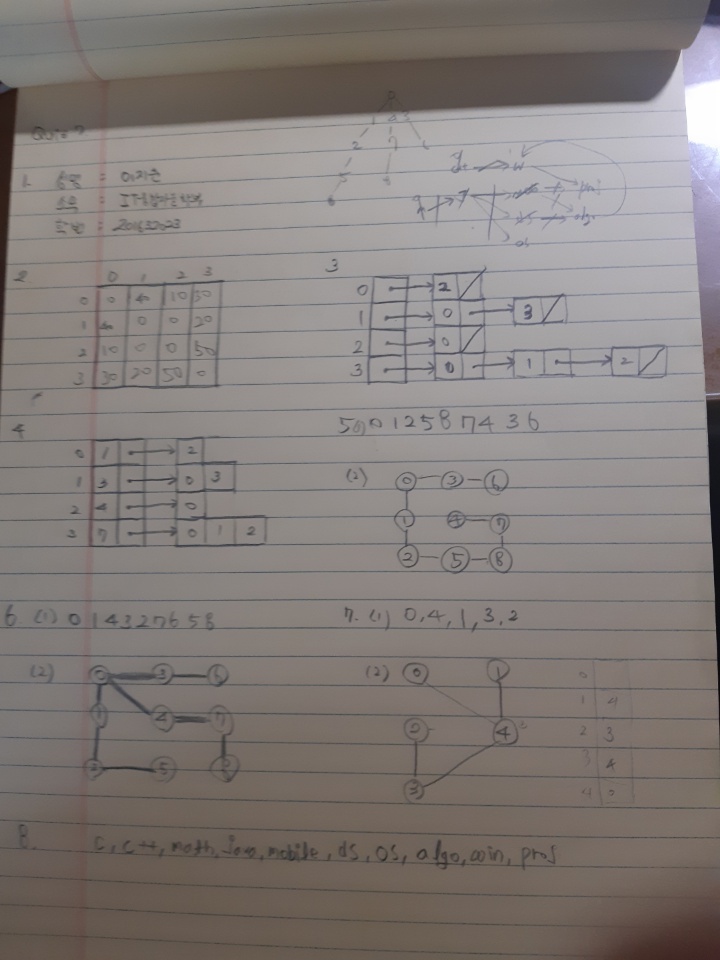 Quiz 7
1. 성명 : 이지은
소속 :
학번 :
2
0 1 2 3
0 0 40 10 30
1 40 0 0 20
2 10 0 0 50
3 30 20 50 0
3
0 2
1 0 3
2 0
3 0 1 2
4
0 1 2
1 3 0 3
2 4 0
3 7 0 1 2
5 (1) 0 1 2 5 8 7 4 3 6
(2)
0 3 6
1 4 7
2 5 8
6. (1) 0 1 4 3 2 7 6 5 8
(2)
0 3 6
1 4 7
2 5 8
7. (1) 0, 4, 1, 3, 2
(2)
0 1
2 4
3
0
1 4
2 3
3 4
4 0
8. C, C++, math, Java, mobile, ds, OS, algo, coin, proj